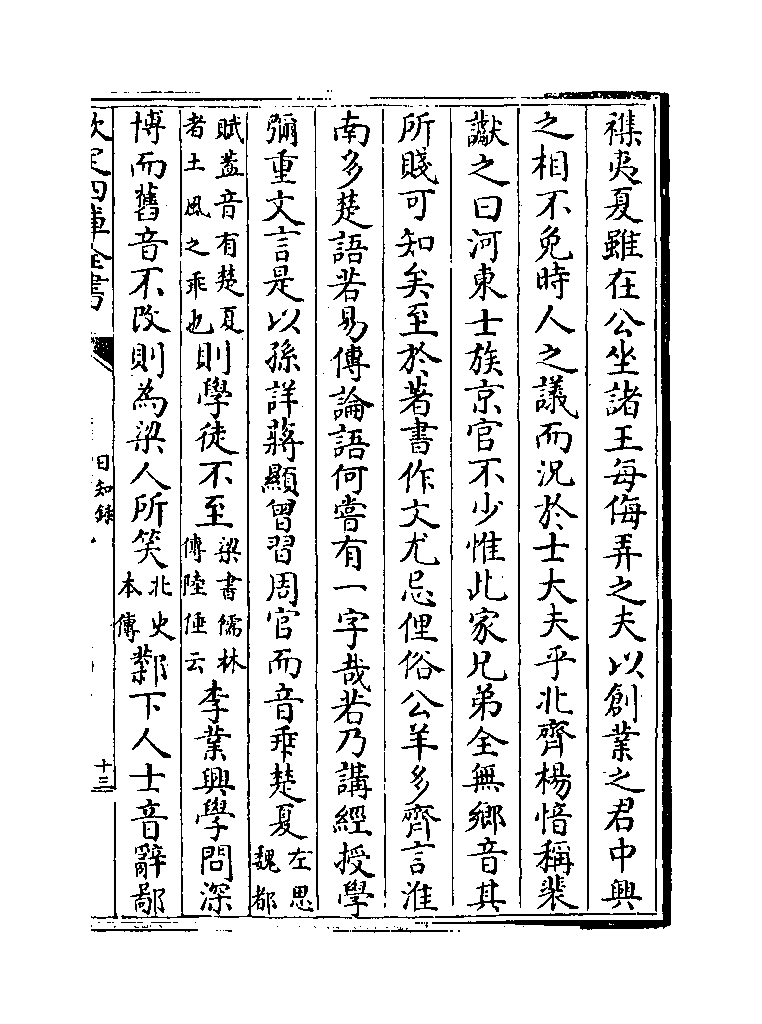 襍夷夏雖在公坐諸王每侮弄之夫以創業之君中興
之相不免時人之議而況於士大夫乎北齊楊愔稱裴
讞之曰河東士族京官不少惟此家兄弟全無鄉音其
所賤可知矣至於著書作文尤忌俚俗公羊多齊言淮
南多楚語若易傳論語何嘗有一字哉若乃講經授學
彌重文言是以孫詳蔣顯曾習周官而音乖楚夏左思魏都
賦葢音有楚夏者土風之乖也則學徒不至梁書儒林傳陸倕云李業興學問深
博而舊音不改則為梁人所笑北史本傳鄴下人士音辭鄙
欽定四庫全書
日知錄
十三